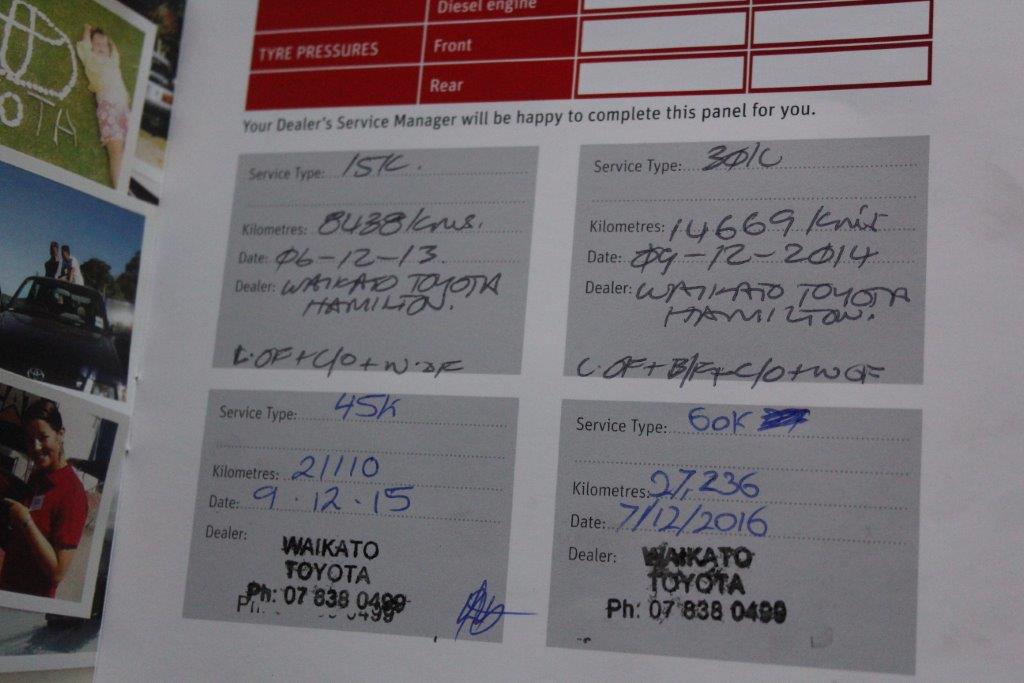 OTA
Diesel engine
TYRE PRESSURES
Front
Rear
Your Dealer's Service Manager will be happy to complete this panel for you.
Service Type: 15K.
Kilometres: 8438/kms.
Date: 06-12-13.
Dealer: WAIKATO TOYOTA
HAMILTON.
C/O
Service Type: 30K
Kilometres: 14669/kms
Date: 09-12-2014
Dealer: WAIKATO TOYOTA
HAMILTON.
C.OF+B/F+C/O+WOF
Service Type: 45K
Kilometres: 21110
Date: 9.12.15
Dealer:
WAIKATO
TOYOTA
Ph: 07 838 0499
Service Type: 60K
Kilometres: 27,236
Date: 7/12/2016
Dealer:
WAIKATO
TOYOTA
Ph: 07 838 0499